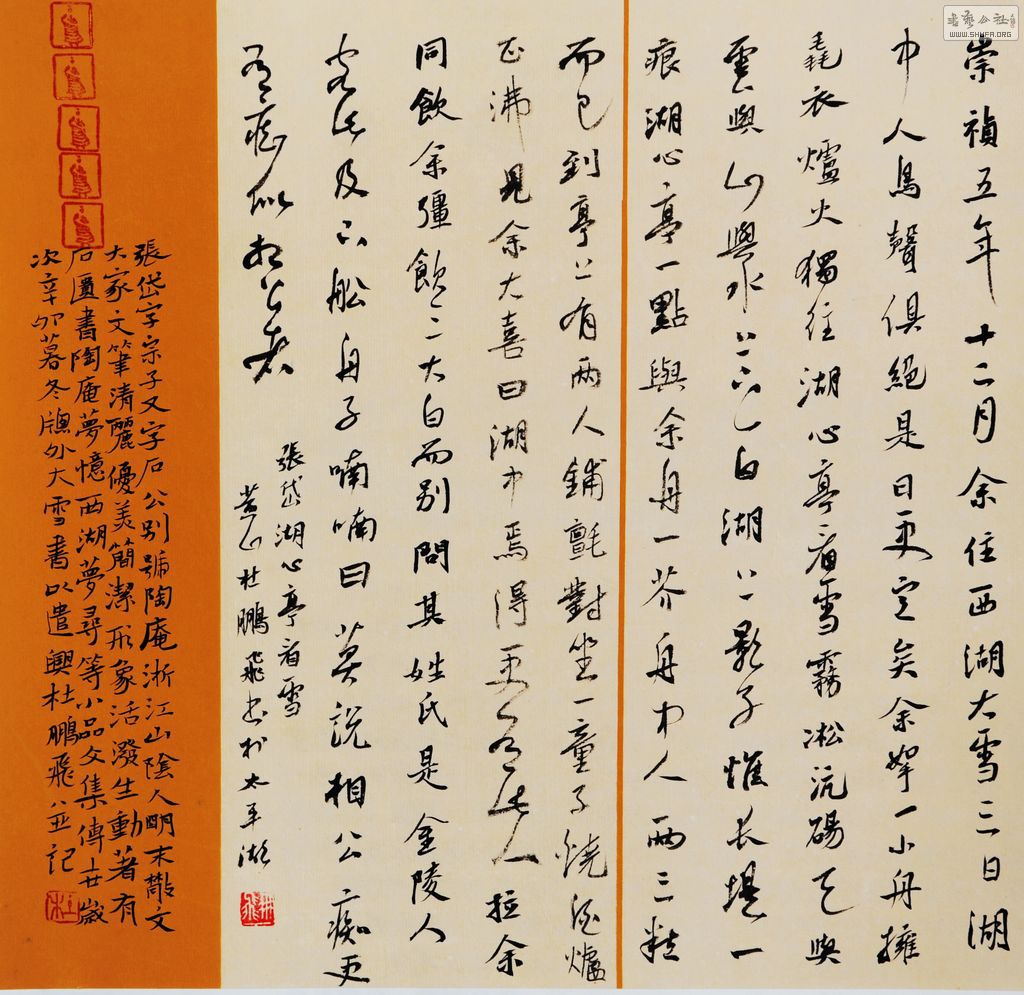 書藝公社
WWW.SHUFA.ORG
崇禎五年十二月余住西湖大雪三日湖
中人鳥聲俱絕是日更定矣余拏一小舟擁
毳衣爐火獨往湖心亭看雪霧凇沆碭天與
雲與山與水上下一白湖上影子惟長堤一
痕湖心亭一點與余舟一芥舟中人兩三粒
而已到亭上有兩人鋪氈對坐一童子燒酒爐
正沸見余大喜曰湖中焉得更有此人拉余
同飲余彊飲三大白而別問其姓氏是金陵人
客此及下船舟子喃喃曰莫說相公痴更
有痴似相公者
張岱湖心亭看雪
黃山杜鵬飛書於太平湖
張岱字宗子又字石公別號陶庵浙江山陰人明末散文
大家文筆清麗優美簡潔形象活潑生動著有
石匱書陶庵夢憶西湖夢尋等小品文集傳世歲
次辛卯暮冬牕外大雪書以遣興杜鵬飛並記